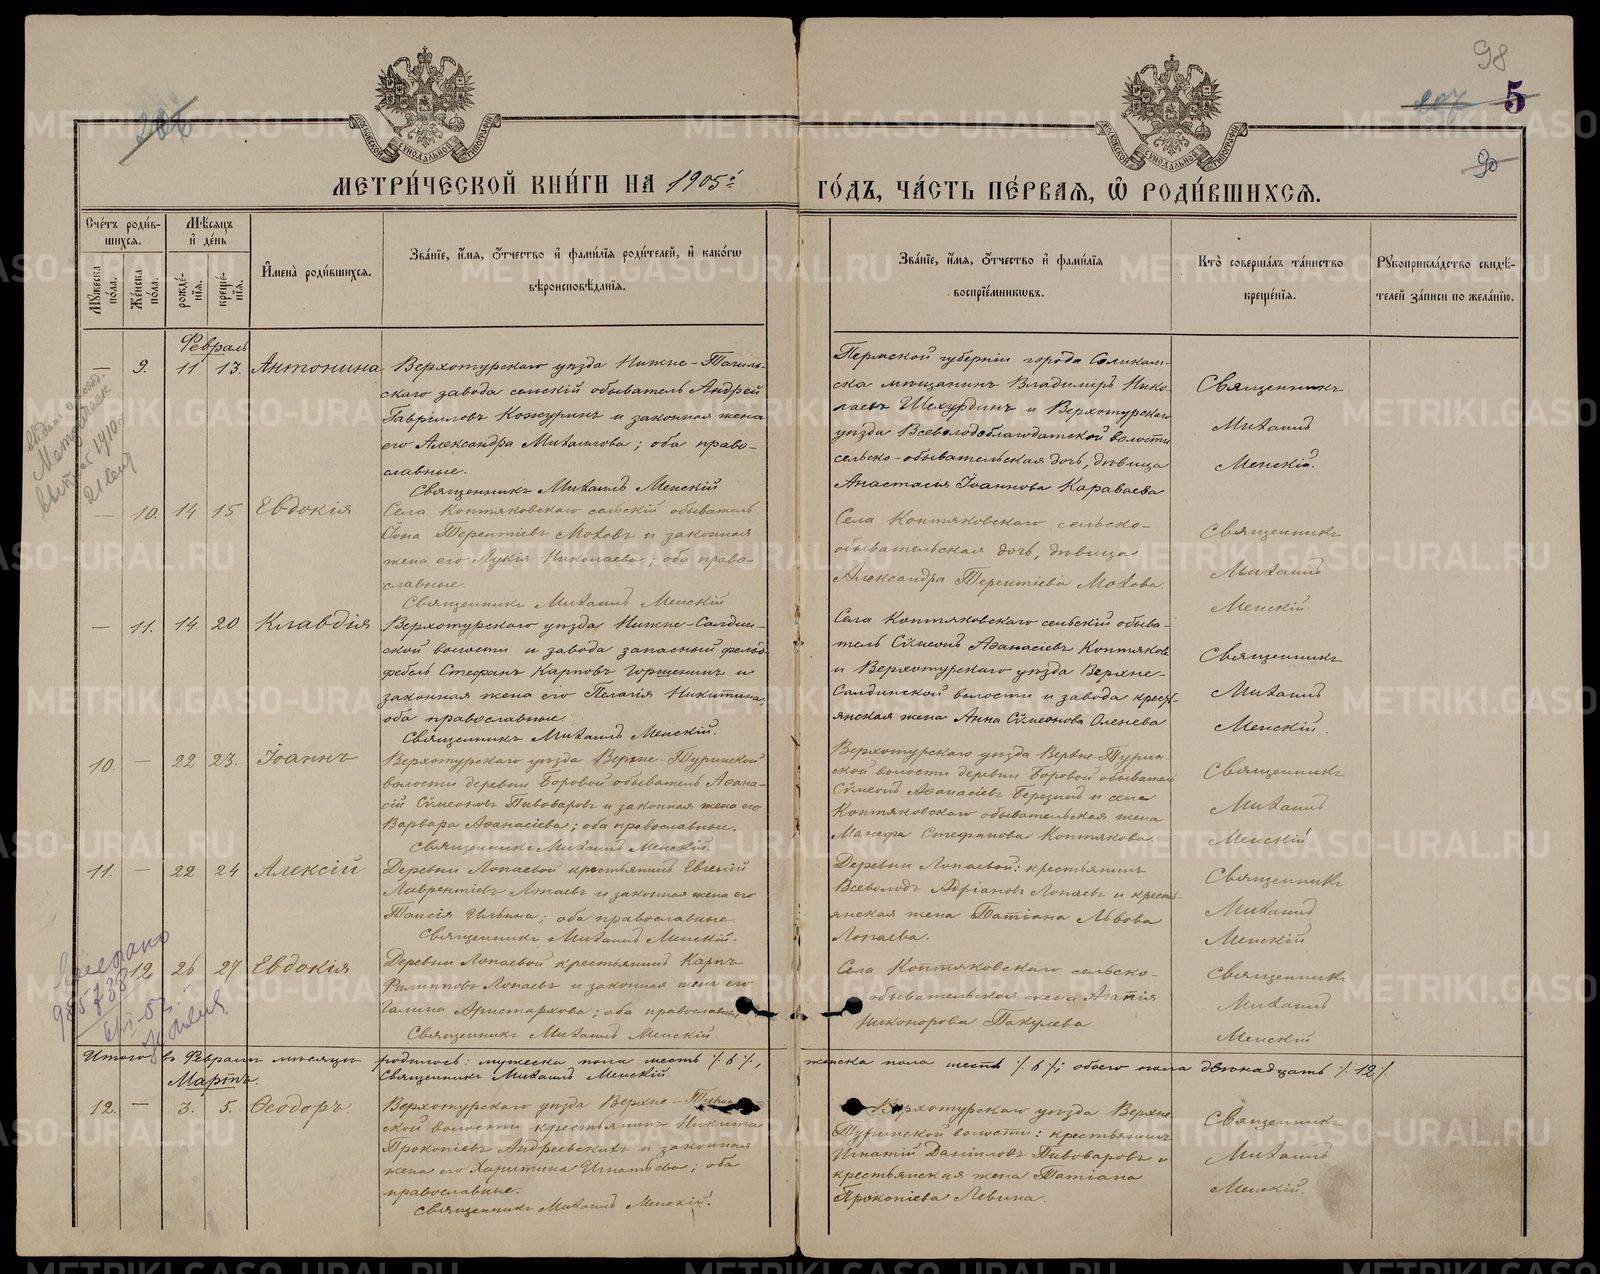 98
207
207
5
90
МЕТРИЧЕСКОЙ КНИГИ НА 1905й
ГОДЪ, ЧАСТЬ ПЕРВАЯ, Ѡ РОДИВШИХСЯ.
МОСКОВСКОЙ СѴНОДАЛЬНОЙ ТИПОГРАФІИ
МОСКОВСКОЙ СѴНОДАЛЬНОЙ ТИПОГРАФІИ
Счетъ родившихся.
Мѣсяцъ и день
Мужеска пола.
Женска пола.
рожденія.
крещенія.
Имена родившихся.
Званіе, имя, отчество и фамилія родителей, и какого
вѣроисповѣданія.
Званіе, имя, отчество и фамилія
воспріемниковъ.
Кто совершалъ таинство
крещенія.
Рукоприкладство свидѣ-
телей записи по желанію.
Февраль
— 9. 11 13. Антонина
Верхотурскаго уѣзда Нижне-Тагиль-
скаго завода сельскій обыватель Андрей
Гавріиловъ Кожуринъ и законная жена
его Александра Михаилова; оба право-
славные.
Священникъ Михаилъ Менскій
Пермской губерніи города Соликам-
ска мѣщанинъ Владиміръ Нико-
лаевъ Шехурдинъ и Верхотурскаго
уѣзда Всеволодоблагодатской волости
сельско-обывательская дочь, дѣвица
Анастасія Іоаннова Караваева
Священникъ
Михаилъ
Менскій.
— 10. 14 15 Евдокія
Села Коптяковскаго сельскій обыватель
Іона Терентіевъ Моховъ и законная
жена его Лукія Николаева; оба право-
славные.
Священникъ Михаилъ Менскій
Села Коптяковскаго сельско-
обывательская дочь, дѣвица
Александра Терентіева Мохова.
Священникъ
Михаилъ
Менскій.
— 11. 14. 20 Клавдія
Верхотурскаго уѣзда Нижне-Салдин-
ской волости и завода запасный фельд-
фебель Стефанъ Карповъ Горшенинъ и
законная жена его Пелагія Никитина;
оба православные.
Священникъ Михаилъ Менскій.
Села Коптяковскаго сельскій обыва-
тель Сѷмеонъ Аѳанасіевъ Коптяковъ
и Верхотурскаго уѣзда Верхне-
Салдинской волости и завода кресть-
янская жена Анна Сѷмеонова Оленева
Священникъ
Михаилъ
Менскій.
10. — 22 23. Іоаннъ
Верхотурскаго уѣзда Верхне-Туринской
волости деревни Боровой обыватель Аѳана-
сій Сѷмеоновъ Пивоваровъ и законная жена его
Варвара Аѳанасіева; оба православные.
Священникъ Михаилъ Менскій.
Верхотурскаго уѣзда Верхне-Турин-
ской волости деревни Боровой обыватель
Сѷмеонъ Аѳанасіевъ Березинъ и села
Коптяковскаго обывательская жена
Манефа Стефанова Коптякова.
Священникъ
Михаилъ
Менскій.
11. — 22. 24 Алексій
Деревни Лопаевой крестьянинъ Евгеній
Лаврентіевъ Лопаевъ и законная жена его
Таисія Ильина; оба православные.
Священникъ Михаилъ Менскій.
Деревни Лопаевой: крестьянинъ
Всеволодъ Адріановъ Лопаевъ и кресть-
янская жена Татіана Львова
Лопаева.
Священникъ
Михаилъ
Менскій
12 26 27 Евдокія
Деревни Лопаевой крестьянинъ Карпъ
Филипповъ Лопаевъ и законная жена его
Галина Аристархова; оба православные
Священникъ Михаилъ Менскій.
Села Коптяковскаго сельско-
обывательская жена Агапія
Никонорова Пакулева
Священникъ
Михаилъ
Менскій
Итого въ Февралѣ мѣсяцѣ родилось: мужеска пола шесть /. 6 /., женска пола шесть /. 6 /.; обоего пола двѣнадцать /. 12 /.
Священникъ Михаилъ Менскій.
Мартъ.
12. — 3. 5. Ѳеодоръ.
Верхотурскаго уѣзда Верхне-Турин-
ской волости крестьянинъ Никита
Прокопіевъ Андреевскихъ и законная
жена его Харитина Игнатьева; оба
православные.
Священникъ Михаилъ Менскій.
Верхотурскаго уѣзда Верхне
Туринской волости: крестьянинъ
Игнатій Даниловъ Пивоваровъ и
крестьянская жена Татіана
Прокопіева Левина.
Священникъ
Михаилъ
Менскій.
METRIKI.GASO-URAL.RU